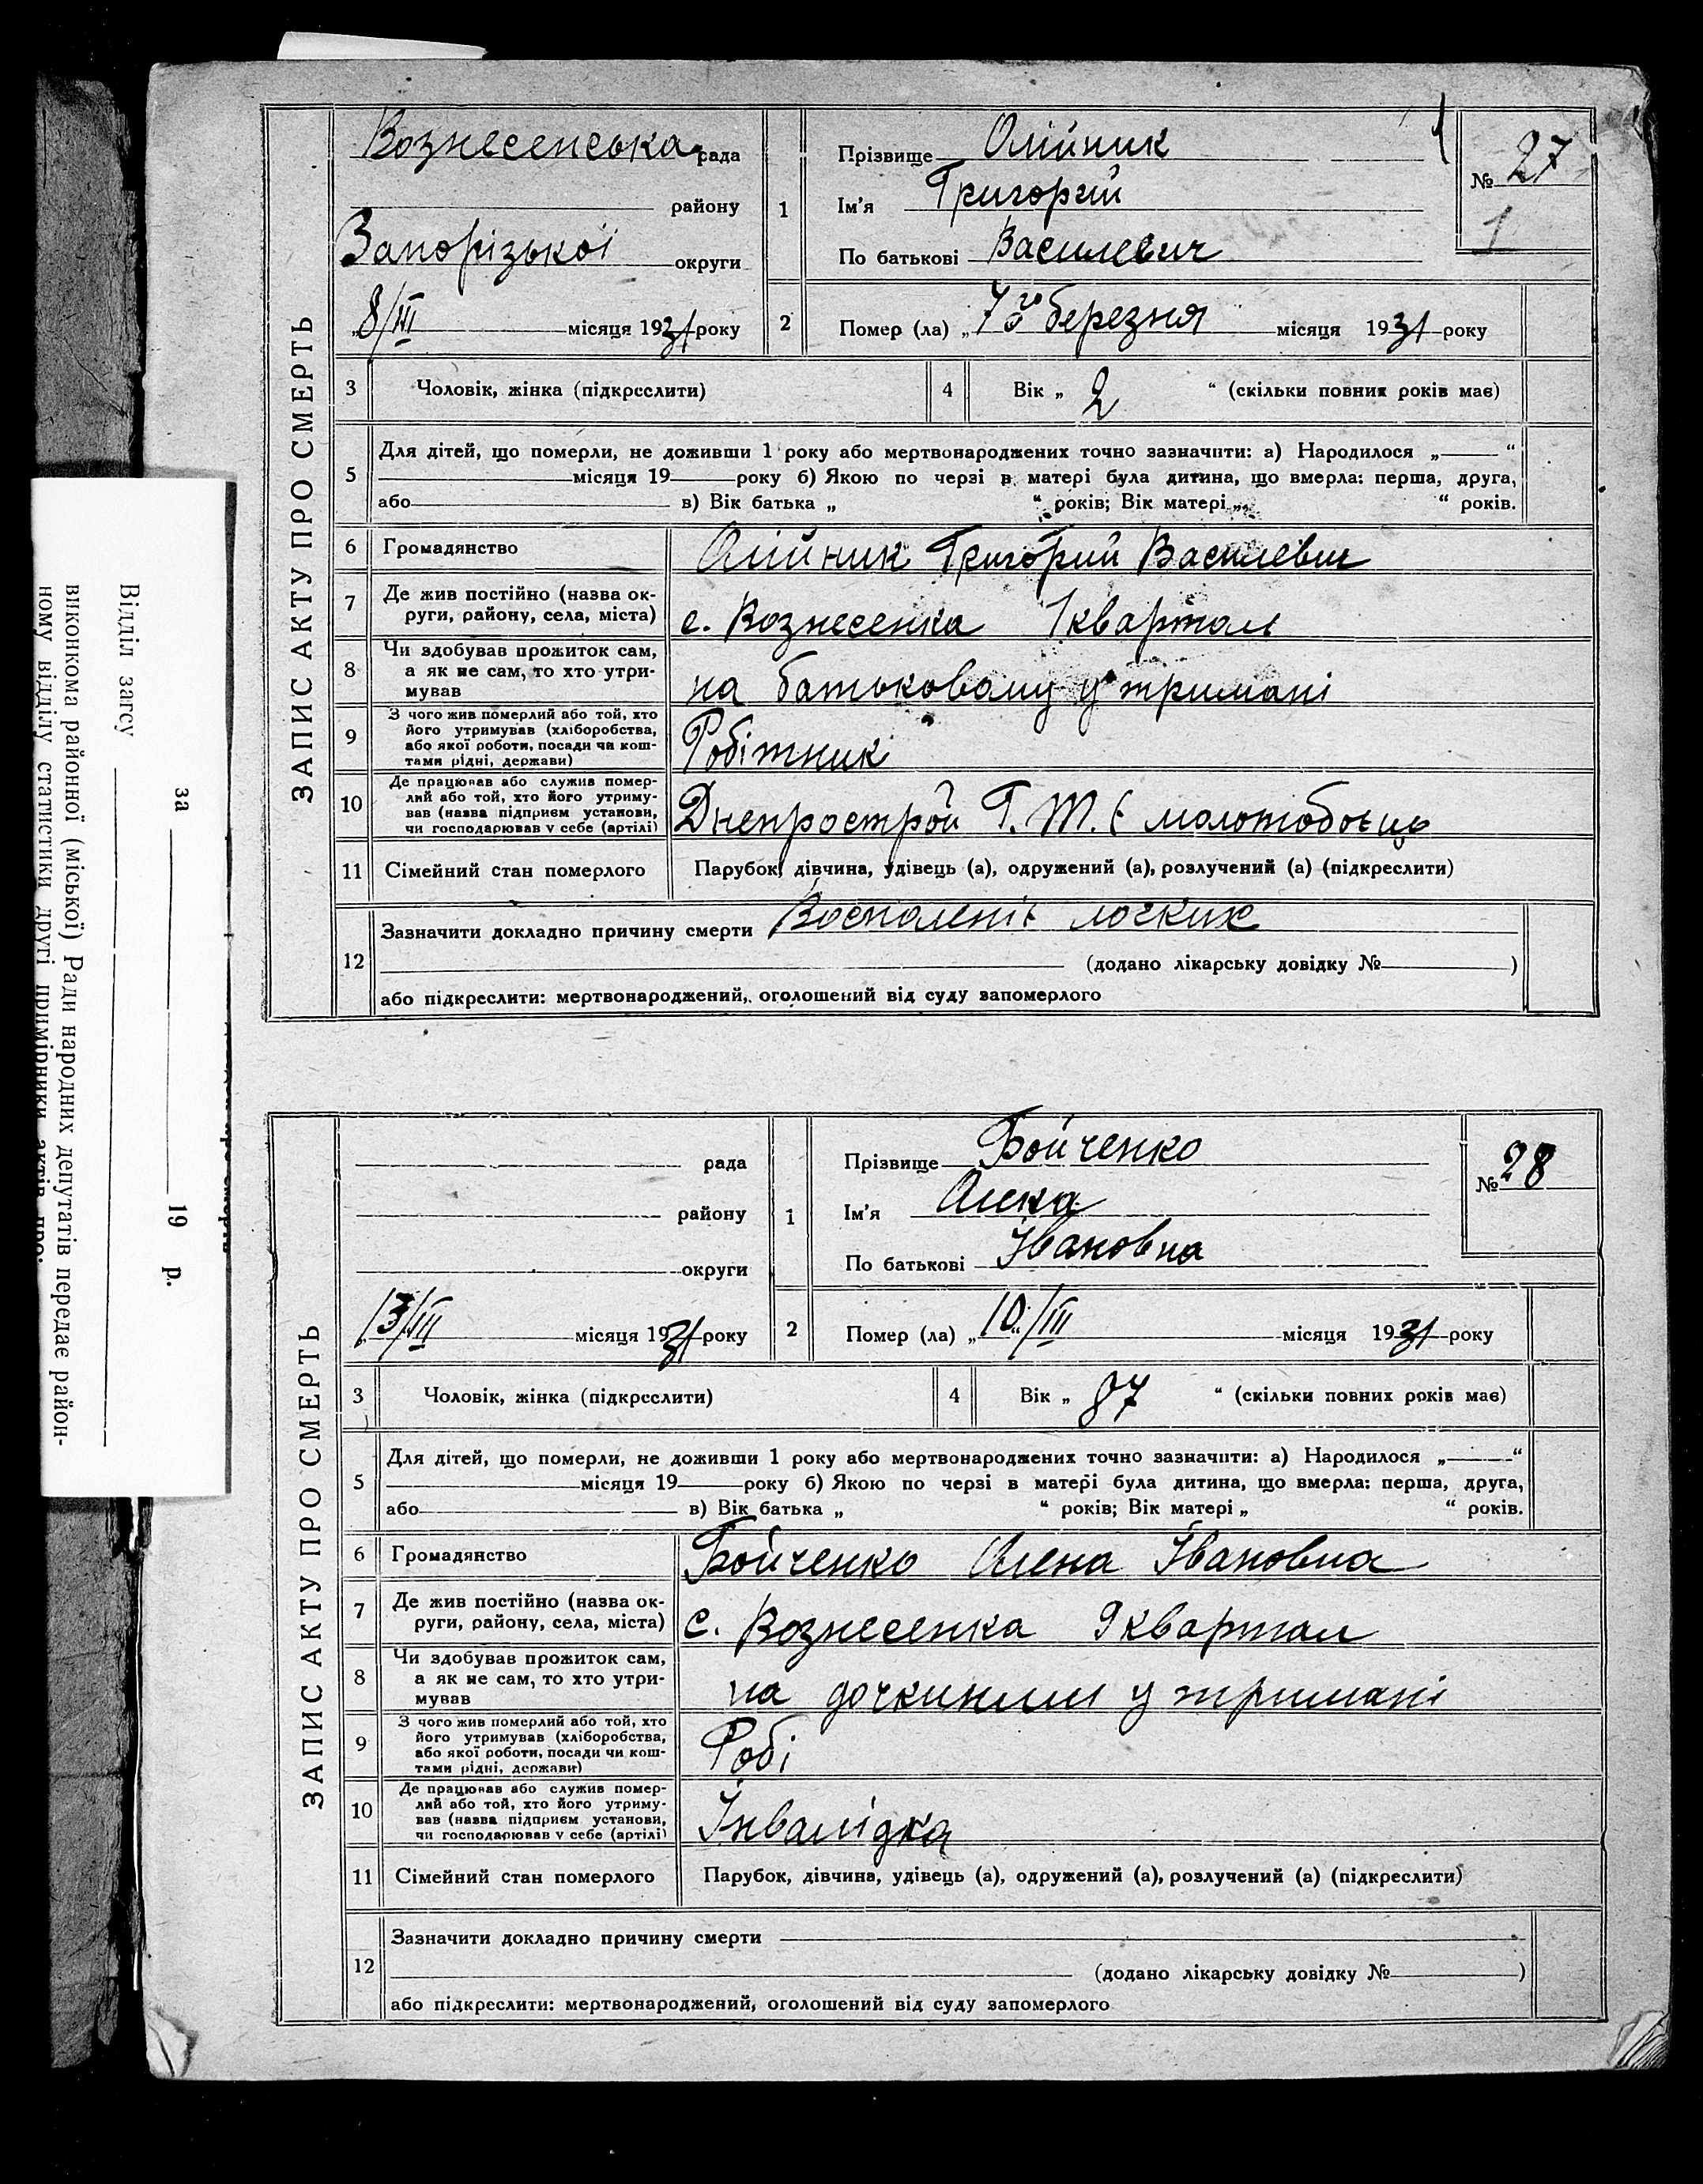 ЗАПИС АКТУ ПРО СМЕРТЬ
Вознесенська рада
району
Запорізької округи
„8/III місяця 1931 року
1
Прізвище Олійник
Ім'я Григорій
По батькові Василевич
№ 27
1
2 Помер (ла) „7го березня місяця 1931 року
3 Чоловік, жінка (підкреслити)
4 Вік „ 2 “ (скільки повних років має)
5 Для дітей, що померли, не доживши 1 року або мертвонароджених точно зазначити: а) Народилося „ “
місяця 19 року б) Якою по черзі в матері була дитина, що вмерла: перша, друга,
або в) Вік батька „ “ років; Вік матері „ “ років.
6 Громадянство Олійник Григорий Василевич
7 Де жив постійно (назва ок-
руги, району, села, міста) с. Вознесенка 1 квартал
8 Чи здобував прожиток сам,
а як не сам, то хто утри-
мував на батьковому утримані
9 З чого жив померлий або той, хто
його утримував (хліборобства,
або якої роботи, посади чи кош-
тами рідні, держави) Робітник
10 Де працював або служив помер-
лий або той, хто його утриму-
вав (назва підприєм установи,
чи господарював у себе (артілі) Днепрострой Г. Т. Є молотобоєць
11 Сімейний стан померлого Парубок, дівчина, удівець (а), одружений (а), розлучений (а) (підкреслити)
12 Зазначити докладно причину смерти Воспаленіє логких
(додано лікарську довідку № )
або підкреслити: мертвонароджений, оголошений від суду запомерлого
ЗАПИС АКТУ ПРО СМЕРТЬ
рада
району
округи
„13/III місяця 1931 року
1
Прізвище Бойченко
Ім'я Олена
По батькові Івановна
№ 28
2 Помер (ла) „10“/III місяця 1931 року
3 Чоловік, жінка (підкреслити)
4 Вік „ 87 “ (скільки повних років має)
5 Для дітей, що померли, не доживши 1 року або мертвонароджених точно зазначити: а) Народилося „ “
місяця 19 року б) Якою по черзі в матері була дитина, що вмерла: перша, друга,
або в) Вік батька „ “ років; Вік матері „ “ років.
6 Громадянство Бойченко Олена Івановна
7 Де жив постійно (назва ок-
руги, району, села, міста) с. Вознесенка 9 квартал
8 Чи здобував прожиток сам,
а як не сам, то хто утри-
мував на дочкиним утримані
9 З чого жив померлий або той, хто
його утримував (хліборобства,
або якої роботи, посади чи кош-
тами рідні, держави) Робі
10 Де працював або служив помер-
лий або той, хто його утриму-
вав (назва підприєм установи,
чи господарював у себе (артілі) Інвалідка
11 Сімейний стан померлого Парубок, дівчина, удівець (а), одружений (а), розлучений (а) (підкреслити)
12 Зазначити докладно причину смерти
(додано лікарську довідку № )
або підкреслити: мертвонароджений, оголошений від суду запомерлого
за 19 р.
Відділ загсу
виконкома районної (міської) Ради народних депутатів передає район-
ному відділу статистики другі примірники актів про: